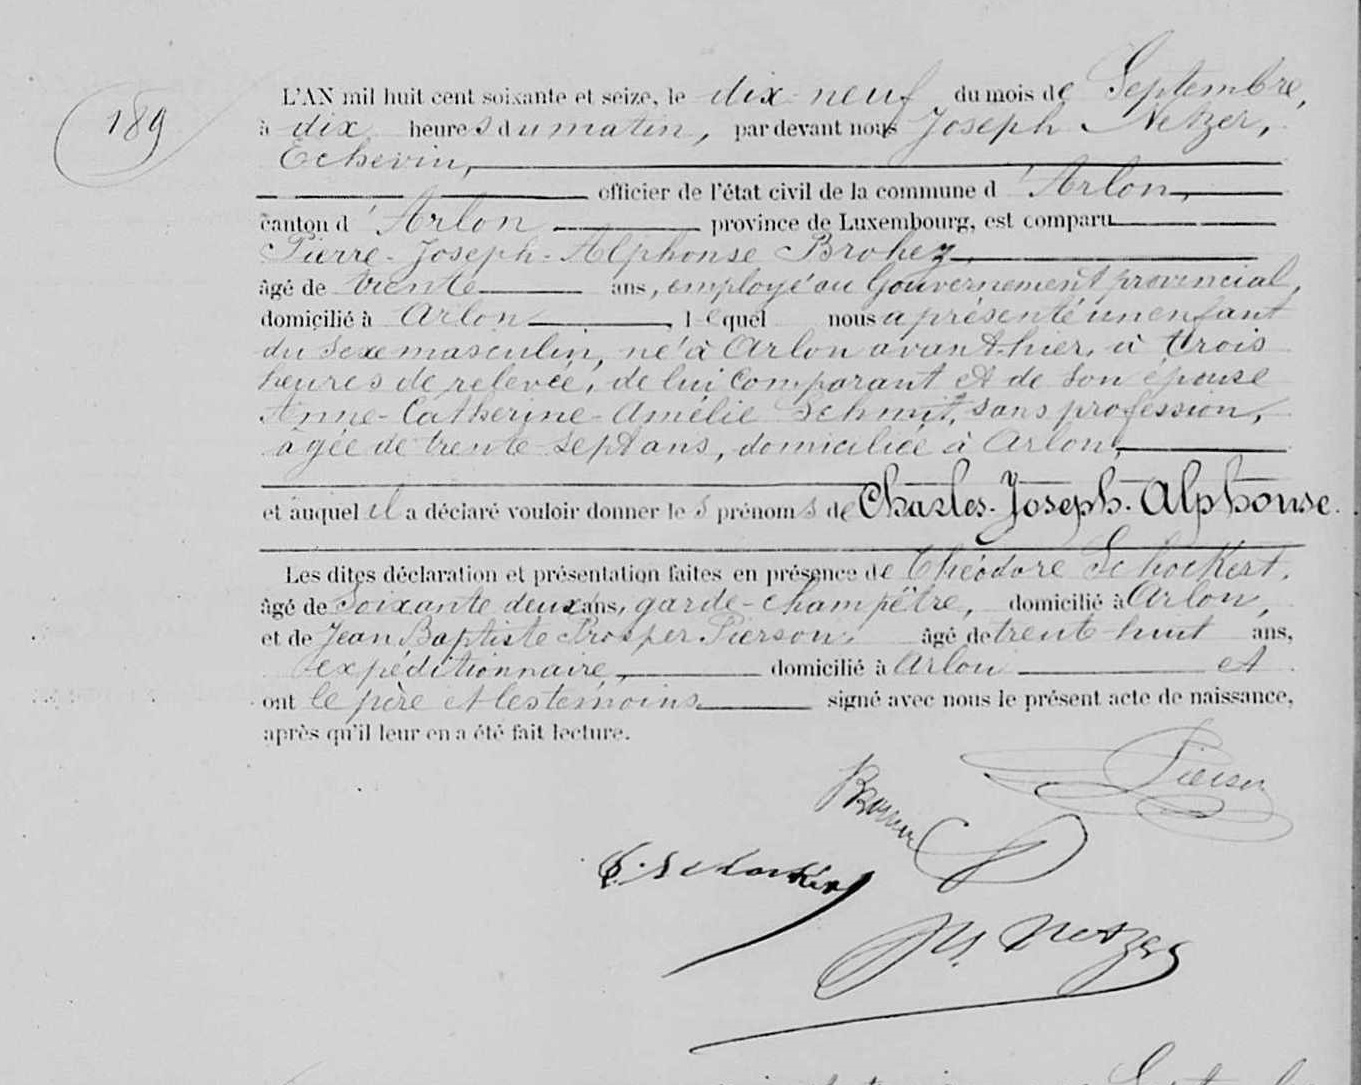 189
L'AN mil huit cent soixante et seize, le dix neuf du mois de Septembre,
à dix heures du matin, par devant nous Joseph Netzer,
Echevin,
officier de l'état civil de la commune d'Arlon,
canton d'Arlon province de Luxembourg, est comparu
Pierre-Joseph-Alphonse Brohez
âgé de trente ans, employé au Gouvernement provincial,
domicilié à Arlon, lequel nous a présenté un enfant
du sexe masculin, né à Arlon avant-hier, à trois
heures de relevée, de lui Comparant et de son épouse
Anne-Catherine-Amélie Schmit, sans profession,
agée de trente-sept ans, domiciliée à Arlon,
et auquel il a déclaré vouloir donner les prénoms de Charles-Joseph-Alphonse.
Les dites déclaration et présentation faites en présence de Théodore Schockert,
âgé de Soixante deux ans, garde-champêtre, domicilié à Arlon,
et de Jean Baptiste Prosper Pierson, âgé de trente-huit ans,
expéditionnaire, domicilié à Arlon et
ont le père et les témoins signé avec nous le présent acte de naissance,
après qu'il leur en a été fait lecture.
Pierson
Jh. Netzer